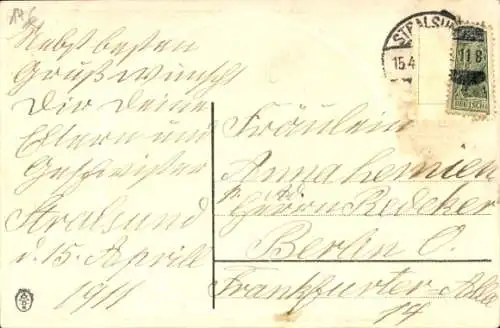 Nebst besten
Grüß wünscht
Dir deine
Eltern und
Geschwister
Stralsund
d. 15. Aprill
1911
STRALSU
15.4
11 8
DEUTSCH
Fräulein
Anna
p. Ad.
Herrn Redeker
Berlin O.
Frankfurter-Allee
14